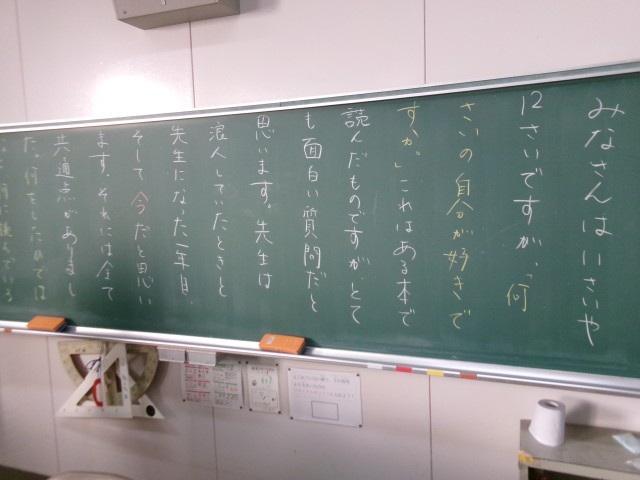 みなさんは11さいや
12さいですが、「何
さいの自分が好きで
すか。」これはある本で
読んだものですが、とて
も面白い質問だと
思います。先生は
浪人していたときと
先生になった一年目、
そして今だと思い
ます。それには全て
共通点がありまし
た。何をしたかでは